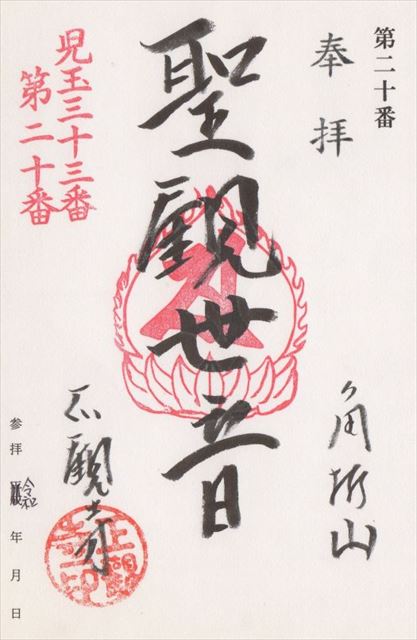 第二十番
奉拝
角折山
聖觀世音
正觀寺
正觀寺印
児玉三十三番
第二十番
参拝 令和 年 月 日